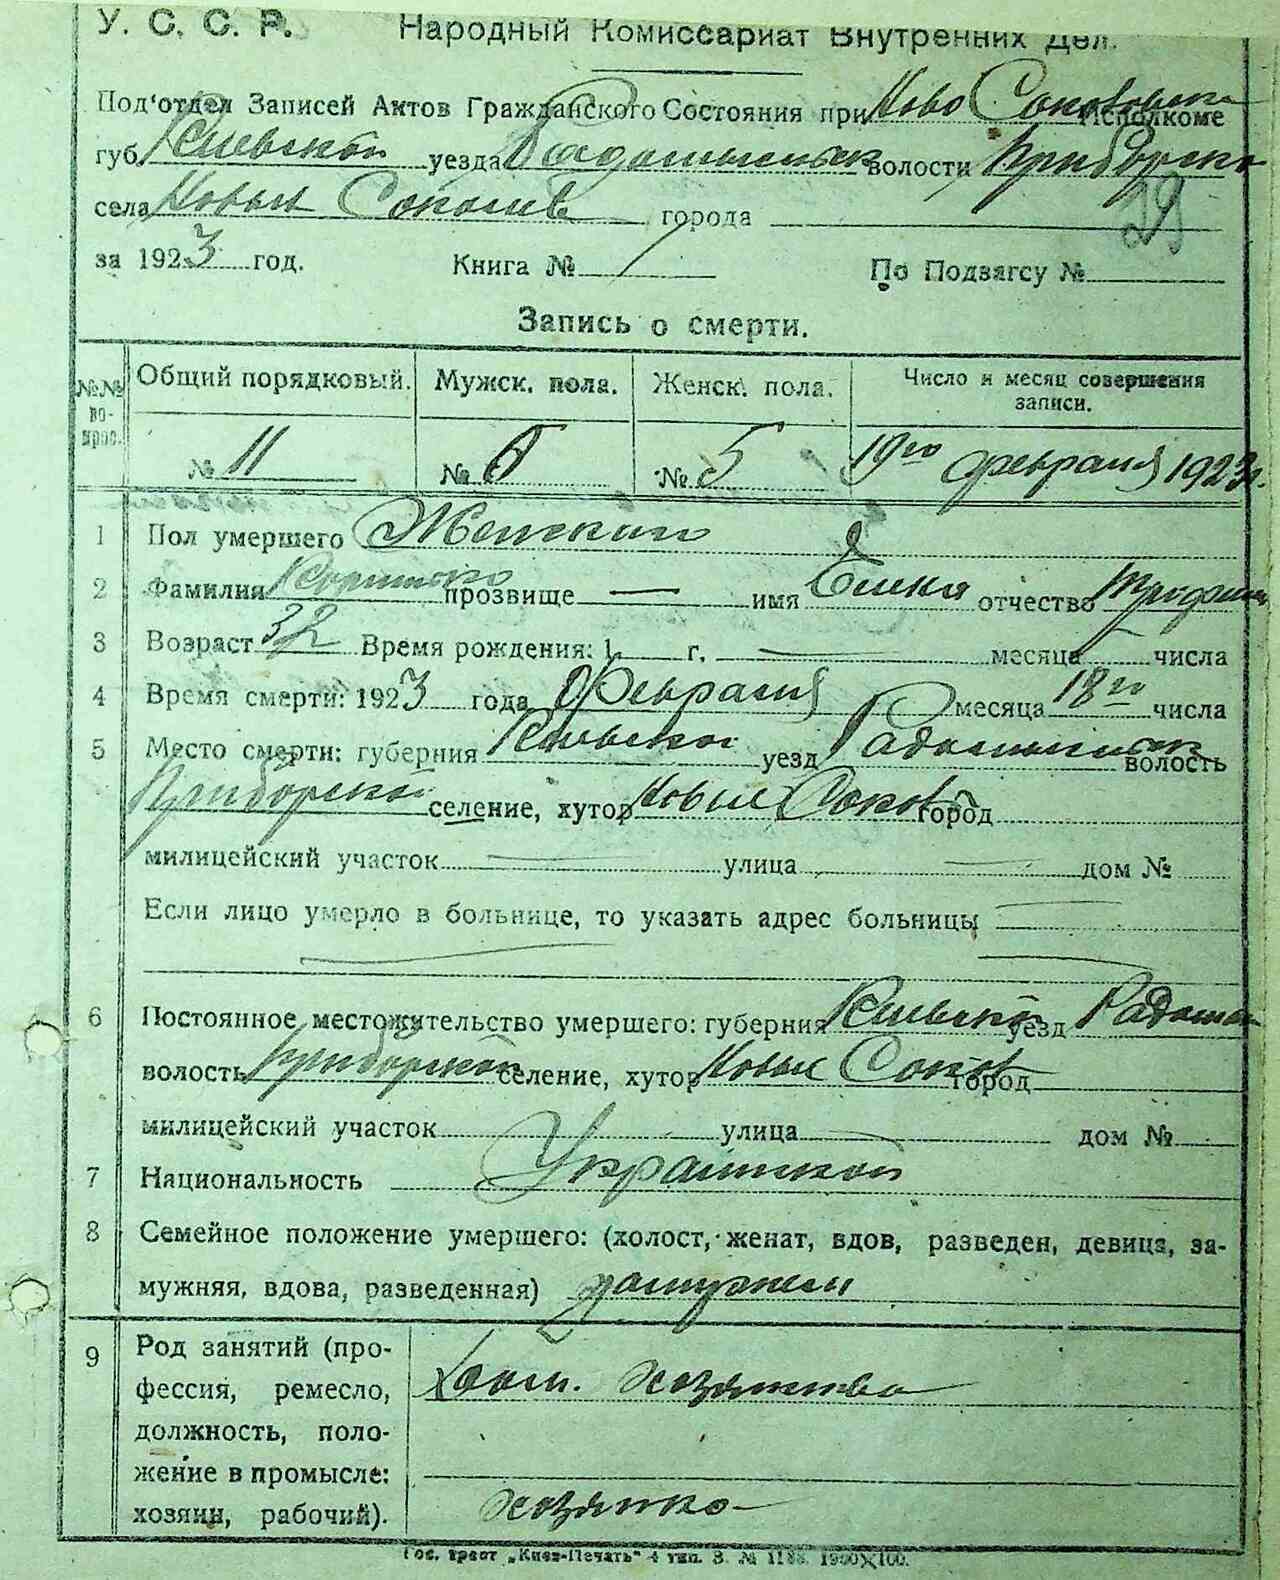 У. С. С. Р. Народный Комиссариат Внутренних Дел.
Под'отдел Записей Актов Гражданского Состояния при Ново Соколовск Исполкоме
губ. Киевской уезда Радомысльск волости Приборско
села Новых Соколов города
29
за 1923 год. Книга № По Подзагсу №
Запись о смерти.
№№ во- прос. Общий порядковый. Мужск. пола. Женск. пола. Число и месяц совершения записи.
№ 11 № 6 № 5 19го февраля 1923 г.
1 Пол умершего Женский
2 Фамилия прозвище — имя Елена отчество Трофим
3 Возраст 32 Время рождения: 1 г. — месяца числа
4 Время смерти: 1923 года Февраля месяца 18го числа
5 Место смерти: губерния Киевской уезд Радомысльск волость
Приборской селение, хутор Новые Сокол город
милицейский участок — улица — дом №
Если лицо умерло в больнице, то указать адрес больницы —
6 Постоянное местожительство умершего: губерния Киевской уезд Радомы
волость Приборской селение, хутор Новые Сокол город
милицейский участок улица — дом №
7 Национальность Украинской
8 Семейное положение умершего: (холост, женат, вдов, разведен, девица, за-
мужняя, вдова, разведенная) замужем
9 Род занятий (про-
фессия, ремесло, Дом. хозяйство
должность, поло-
жение в промысле:
хозяин, рабочий). хозяйка
Гос. трест „Киев-Печать" 4 тип. З. № 1188. 1900×100.